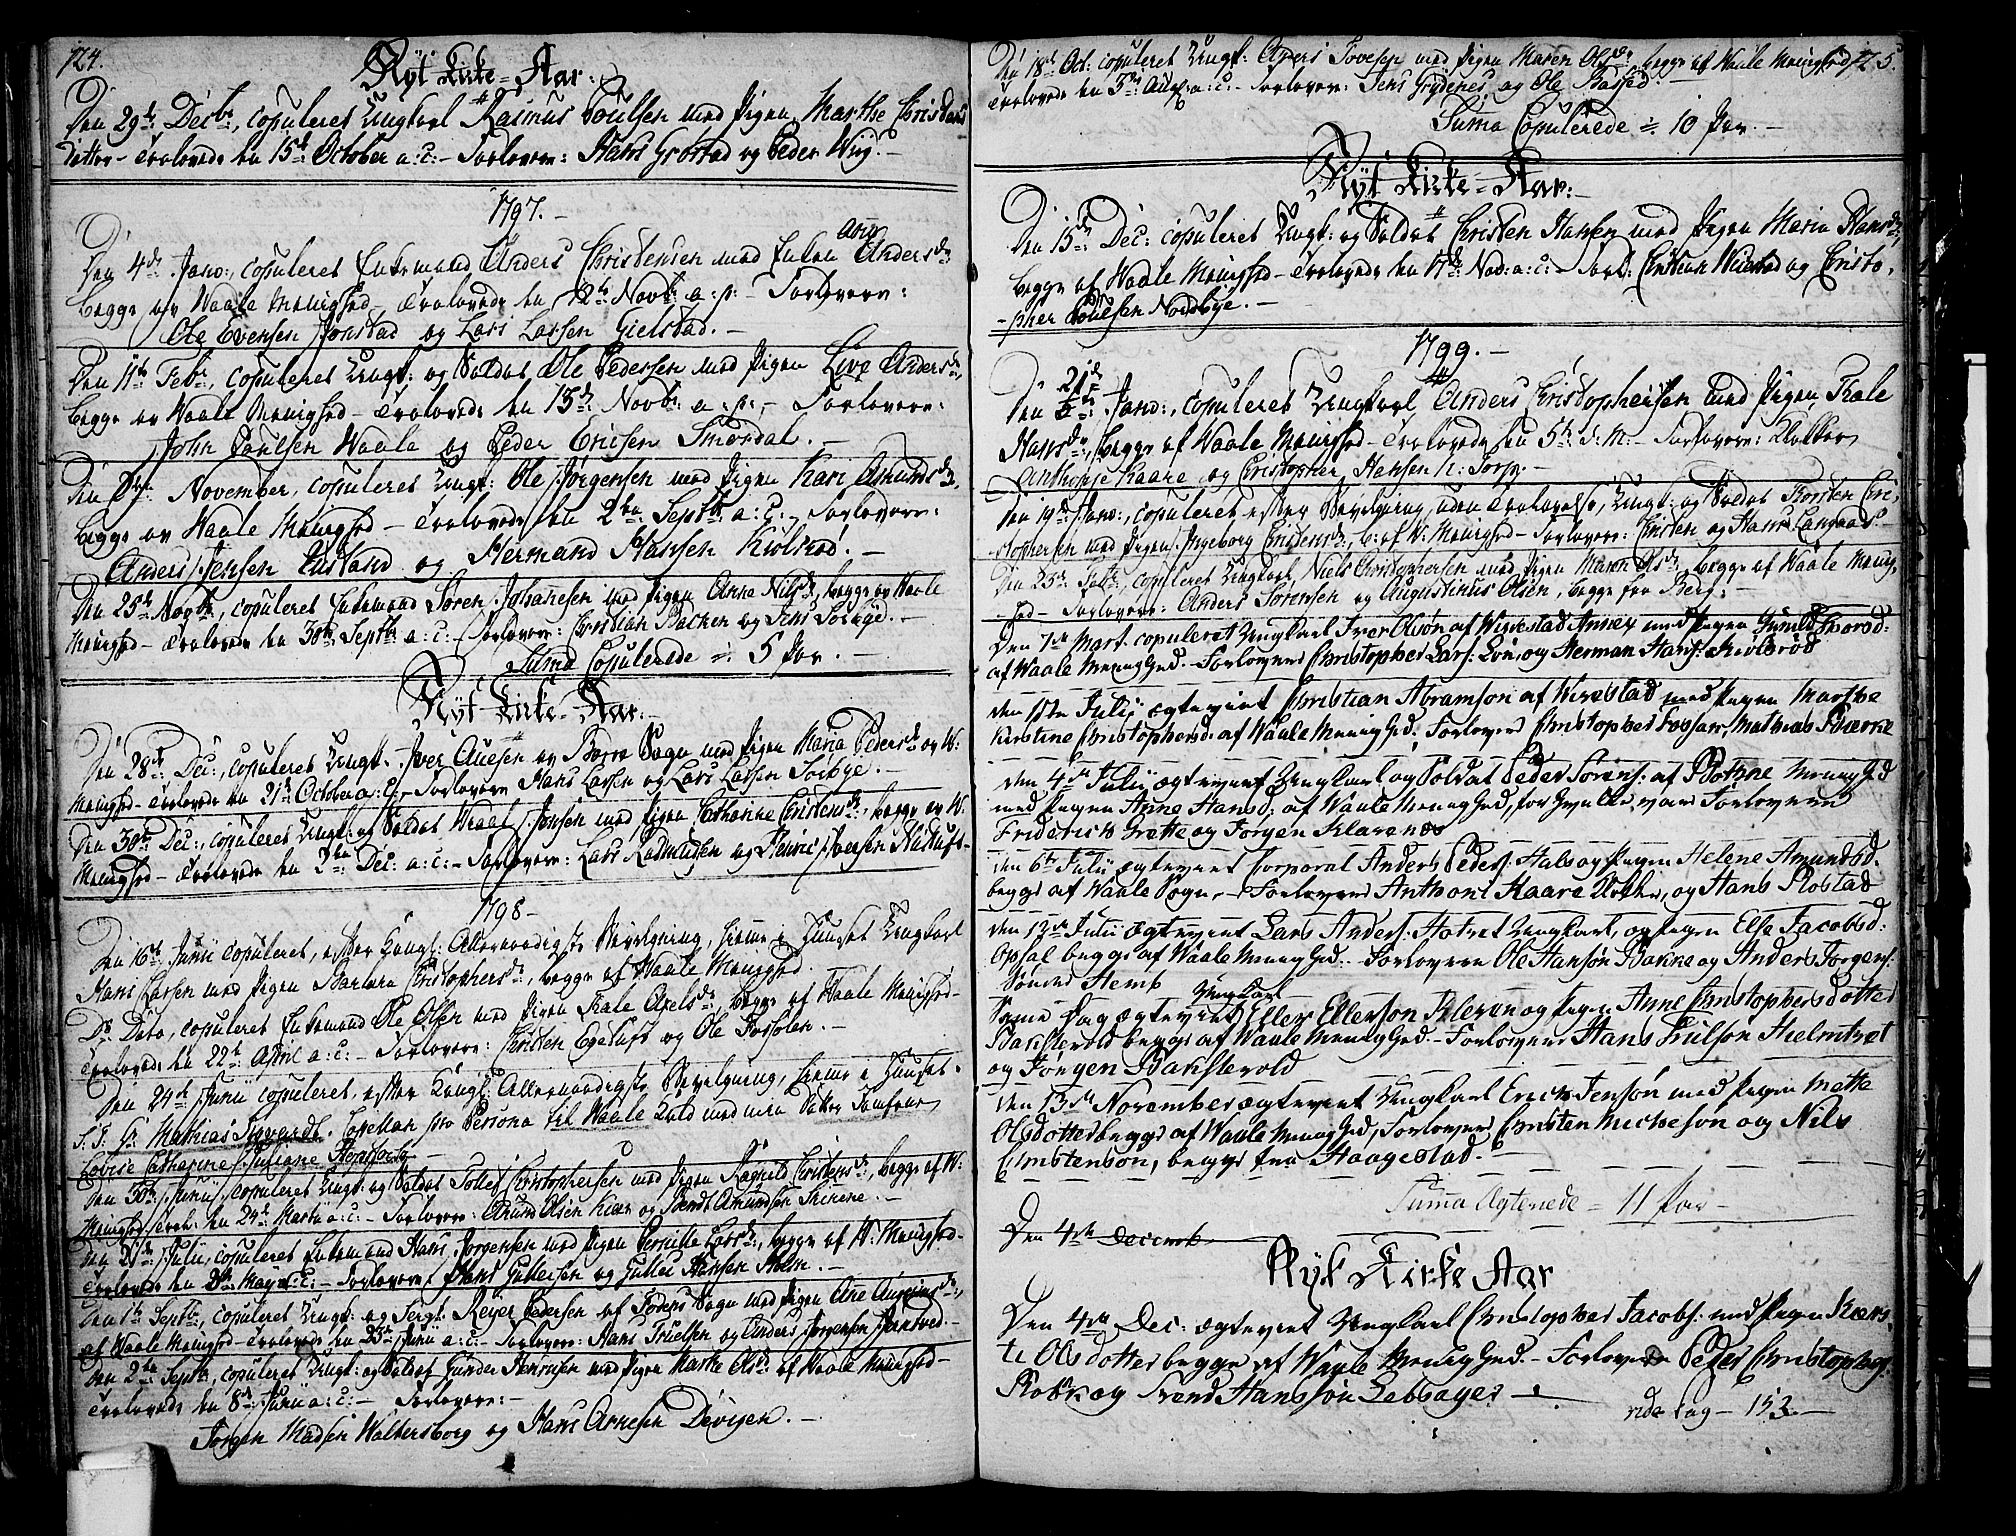 124.
Nÿt Kirke-Aar:
Den 29de Decbr, copuleret Ungkarl Rasmus Poulsen med Pigen Marthe Christens
datter - Trolovede den 15de October a: c: - Forlovere: Hans Grøstad og Peder Wiig. -
1797. -
Den 4de Janv:, copuleret Enkemand Anders Christensen med Enken Anders dr
begge av Waale Menighed - Trolovede den 12te Novbr a: p: - Forlovere:
Ole Evensen Jonstad og Lars Larsen Gielstad. -
Den 11te Febr, copuleret Ungk: og Soldat Ole Pedersen med Pigen Live Anders dr,
begge av Waale Menighed - Trolovede den 13de Novbr a: p: - Forlovere:
John Paulsen Waale og Peder Ericsen Smørdal. -
Den November, copuleret Ungk: Ole Jørgensen med Pigen Kari Asmunds dr,
begge av Waale Menighed - Trolovede den 2den Septbr a: c: - Forlovere:
Anders Jensen og Hermand Hansen Kiolerød. -
Den 25de Novbr, copuleret Enkemand Søren Johannesen med Pigen Anne Nils dr, begge av Waale
Menighed - Trolovede den 30te Septbr a: c: - Forlovere: Christian Bachen og Jens Sorbye. -
Suma Copulerede = 5 Par. -
Nÿt Kirke-Aar:
Den 28de Dec:, copuleret Ungk: Iver Auesen av Borre Sogn med Pigen Maria Peders dr av W:
Menighed - Trolovede den 21de October a: c: - Forlovere Hans Larsen og Lars Larsen Sorbye. -
Den 30te Dec:, copuleret Ungk: og Soldat Jonsen med Pigen Catharine Christens dr, begge av W.
Menighed - Trolovede den 2den Dec: a: c: - Forlovere: Lars Rasmussen og Iversen
1798 -
Den 16de Junii copuleret, efter Kongl: Allernaadigste Bevilgning, hiemme i Huuset Ungkarl
Hans Larsen med Pigen Barbara Christophers dr, begge af Waale Menighed.
Do Dato, copuleret Enkemand Ole Olsen med Pigen Kale Axels dr, begge af Waale Menighed -
Trolovede den 22de April a: c: - Forlovere: Christen Egetuft og Ole Forsolen. -
Den 24de Junii copuleret, efter Kongl: Allernaadigste Bevilgning, hiemme i Huuset -
S. T. Hr Mathias Sigvardt, Capellan pro Persona til Waale Kald med min Datter Jomfrue
Lovise Catharine Juliane
Den 30te Junii, copuleret Ungk: og Soldat Tollef Christophersen med Pigen Ragnild Christens dr, begge af W:
Menighed, Trol: den 24de Martii a: c: - Forlovere: Amund Olsen Kiær og Bendt Amundsen Skinene. -
Den 21de Julii, copuleret Enkemand Hans Jørgensen med Pigen Pernille Lars dr, begge af W: Menighed -
Trolovede den Maji a: c: - Forlovere: Hans Gullersen og Guller Hansen Holm. -
Den 1ste Septbr, copuleret Ungk: og Serg: Reyer Pedersen af Sogn med Pigen Ane dr,
af Waale Menighed - Trolovede den 23de Junii a: c: - Forlovere: Hans Truelsen og Anders Jørgensen
Den 2den Septbr, copuleret Ungk: og Soldat Gunder Henrichsen med Pigen Marthe Ols dr af Waale Menighed -
Trolovede den 8de Junii a: c: - Forlovere: -
Jørgen Madsen Waltersborg og Hans Arnesen Dévigen. -
125.
Den 18de Oct: copuleret Ungk: Anders Tovesen med Pigen Maren Ols dr begge af Waale Menighed
Trolovede den 3die Aug: a: c: - Forlovere: Jens Grydenes og Ole
Suma Copulerede = 10 Par. -
Nÿt Kirke-Aar:
Den 15de Dec: copuleret Ungk: og Soldat Christen Hansen med Pigen Maria Hans dr,
begge af Waale Menighed - Trolovede den 17de Nov: a: c: - Forl: Christian og Christo,
-pher Poulsen Nordbye. -
1799. -
Den 21de Janv:, copuleret Ungkarl Anders Christophersen med Pigen Kale
Hans dr, begge af Waale Menighed - Trolovede den 5te d: M: - Forlovere: Klokker
Anthonie Kaare og Cristopher Hansen N: Torp -
Den 19de Janv:, copuleret efter Bevilgning, uden Trolovelse, Ungk: og Soldat Torsten Cri,
stophersen med Pigen Ingeborg Cristens dr, b: af W: Menighed - Forlovere: Christen og Hans Langaas. -
Den 23de Febr, copuleret Ungkarl Niels Christophersen med Pigen Maren Ols dr, begge af Waale Menig,
hed - Forlovere: Anders Sørensen og Augustinus Olsen, begge fra Berg: -
Den 7de Mart. copuleret Ungkarl Iver Olsøn af Wivestad Annex med Pigen Gunild Thorød:
af Waale Menighed. - Forlovere Christopher Lars: Løn, og Herman Hans: Kiolerød
den 1ste Julii ægteviet Christian Abramson af Wivestad med Pigen Marthe
Kirstine Christophersd: af Waale Menighed, Forlovere Christopher Fossan, Mathias Bierke
den 4de Julii ægteviet Ungkarl og Soldat Peder Sørens: af Bothne Menighed
med Pigen Anne Hansd: af Waale Menighed, for hvilke vare Forlovere
Friderich Grette og Jørgen Klavenæs
den 6te Julii ægteviet Corporal Anders Peders: Hals og Pigen Helene Amundsd.
begge af Waale Sogn - Forlovere Anthoni Kaare Klokker, og Hans Rostad
den 13de Julii ægteviet Lars Anders: Ungkarl, og Pigen Else Jacobsd:
Opsal begge af Waale Menighed. - Forlovere Ole Hansøn Bakke og Anders Jørgens:
Søndre Hemb
Samme Dag ægteviet Ungkarl Eller Ellerson Kleven og Pigen Anne Christophersdotter
Bakstevold begge af Waale Menighed. - Forlovere Hans Trulson Hielmtvet
og Jørgen Bakstevold
den 13de November ægteviet Ungkarl Erich Jensøn med Pigen Mette
Olsdotter begge af Waale Menighed, Forlovere Christen Michelsøn og Nils
Christenson, begge fra Haagestad. -
Suma Ægteviede = 11 Par -
Den 4de Decemb
Nyt Kirke Aar
Den 4de Dec: ægteviet Ungkarl Christopher Jacobs: med Pigen Kiers,
ti Olsdotter begge af Waale Menighed. - Forlovere Peder Christophers:
Robek og Trond Hanssøn Lebsager -
vide Pag - 153. -